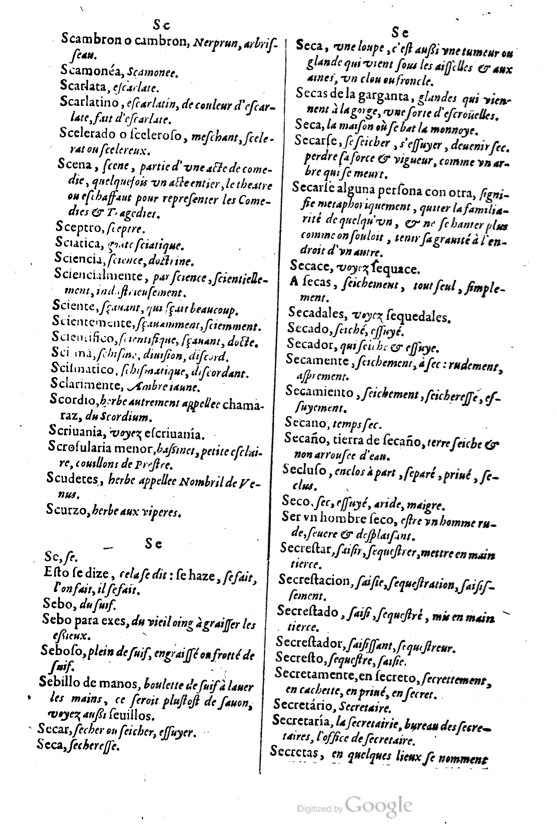 Sc
Scambron o cambron, Nerprun, arbris-
ſeau.
Scamonéa, Scamonee.
Scarlata, eſcarlate.
Scarlatino, eſcarlatin, de couleur d'eſcar-
late, fait d'eſcarlate.
Scelerado o ſceleroſo, meſchant, ſcele-
rat ou ſcelereux.
Scena, ſcene, partie d'vne acte de come-
die, quelquefois vn acte entier, le theatre
ou eſchaffaut pour repreſenter les Come-
dies & Tragedies.
Sceptro, ſceptre.
Sciatica, goute ſciatique.
Sciencia, ſcience, doctrine.
Sciencialmente, par ſcience, ſcientielle-
ment, induſtrieuſement.
Sciente, ſçauant, qui ſçait beaucoup.
Scientemente, ſçauamment, ſciemment.
Scientifico, ſcientifique, ſçauant, docte.
ſchiſme, diuiſion, diſcord.
Sciſmatico, ſchiſmatique, diſcordant.
Sclarimente, Ambre iaune.
Scordio, herbe autrement appellee chama-
raz, du Scordium.
Scriuania, voyez eſcriuania.
Scrofularia menor, baſsinet, petite eſclai-
re, couillons de Preſtre.
Scudetes, herbe appellee Nombril de Ve-
nus.
Scurzo, herbe aux viperes.
Se
Se, ſe.
Eſto ſe dize, cela ſe dit : ſe haze, ſe fait,
l'on fait, il ſe fait.
Sebo, du ſuif.
Sebo para exes, du vieil oing à graiſſer les
eſsieux.
Seboſo, plein de ſuif, engraiſſé ou frotté de
ſuif.
Sebillo de manos, boulette de ſuif à lauer
les mains, ce ſeroit pluſtoſt de ſauon,
voyez auſsi ſeuillos.
Secar, ſecher ou ſeicher, eſſuyer.
Seca, ſechereſſe.
Se
Seca, vne loupe, c'eſt auſsi vne tumeur ou
glande qui vient ſous les aiſſelles & aux
aines, vn clou ou froncle.
Secas de la garganta, glandes qui vien-
nent à la gorge, vne ſorte d'eſcroüelles.
Seca, la maiſon où ſe bat la monnoye.
Secarſe, ſe ſeicher, s'eſſuyer, deuenir ſec,
perdre ſa force & vigueur, comme vn ar-
bre qui ſe meurt.
Secarſe alguna perſona con otra, ſigni-
fie metaphoriquement, quiter la familia-
rité de quelqu'vn, & ne ſe hanter plus
comme on ſouloit, tenir ſa grauité à l'en-
droit d'vn autre.
Secace, voyez ſequace.
A ſecas, ſeichement, tout ſeul, ſimple-
ment.
Secadales, voyez ſequedales.
Secado, ſeiché, eſſuyé.
Secador, qui ſeiche & eſſuye.
Secamente, ſeichement, à ſec : rudement,
aſprement.
Secamiento, ſeichement, ſeichereſſe, eſ-
ſuyement.
Secano, temps ſec.
Secaño, tierra de ſecaño, terre ſeiche &
non arrouſee d'eau.
Secluſo, enclos à part, ſeparé, priué, ſe-
clus.
Seco, ſec, eſſuyé, aride, maigre.
Ser vn hombre ſeco, eſtre vn homme ru-
de, ſeuere & deſplaiſant.
Secreſtar, ſaiſir, ſequeſtrer, mettre en main
tierce.
Secreſtacion, ſaiſie, ſequeſtration, ſaiſiſ-
ſement.
Secreſtado, ſaiſi, ſequeſtré, mis en main
tierce.
Secreſtador, ſaiſiſſant, ſequeſtreur.
Secreſto, ſequeſtre, ſaiſie.
Secretamente, en ſecreto, ſecrettement,
en cachette, en priué, en ſecret.
Secretário, Secretaire.
Secretaria, la ſecretairie, bureau des ſecre-
taires, l'office de ſecretaire.
Secretas, en quelques lieux ſe nomment
Digitized by Google